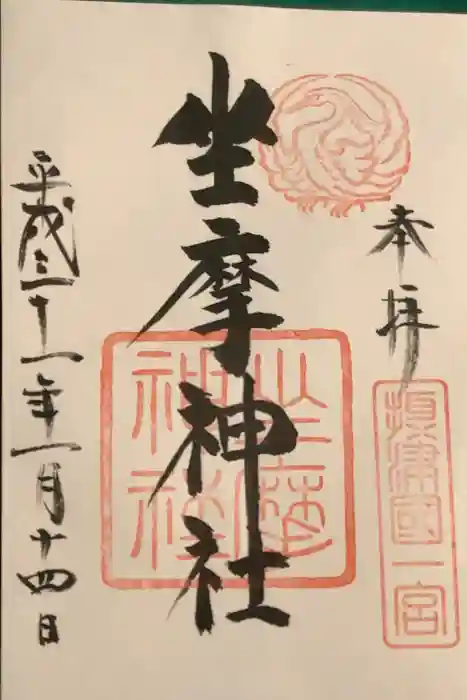 奉拝
攝津國一宮
坐摩神社
坐摩神社
平成三十一年一月十四日